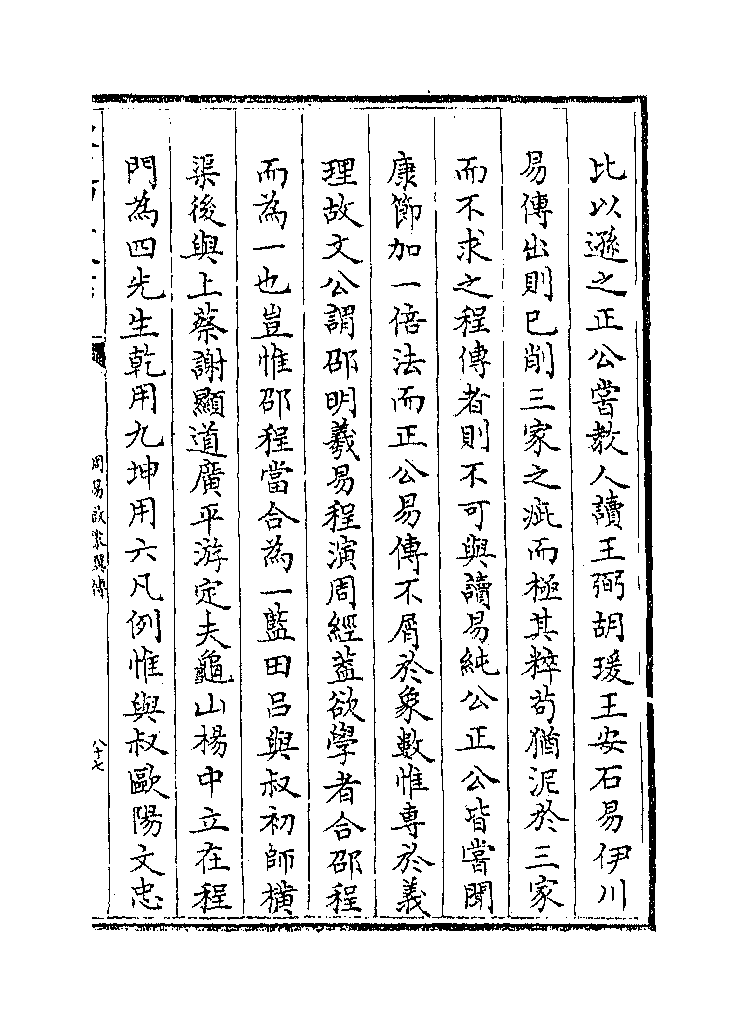 比以遜之正公嘗教人讀王弼胡瑗王安石易伊川
易傳出則已削三家之疵而極其粹茍猶泥於三家
而不求之程傳者則不可與讀易純公正公皆嘗聞
康節加一倍法而正公易傳不屑於象數惟専於義
理故文公謂邵明羲易程演周經葢欲學者合邵程
而為一也豈惟邵程當合為一藍田呂與叔初師横
渠後與上蔡謝顯道廣平游定夫龜山楊中立在程
門為四先生乾用九坤用六凡例惟與叔歐陽文忠
周易啟蒙翼傳
八十七